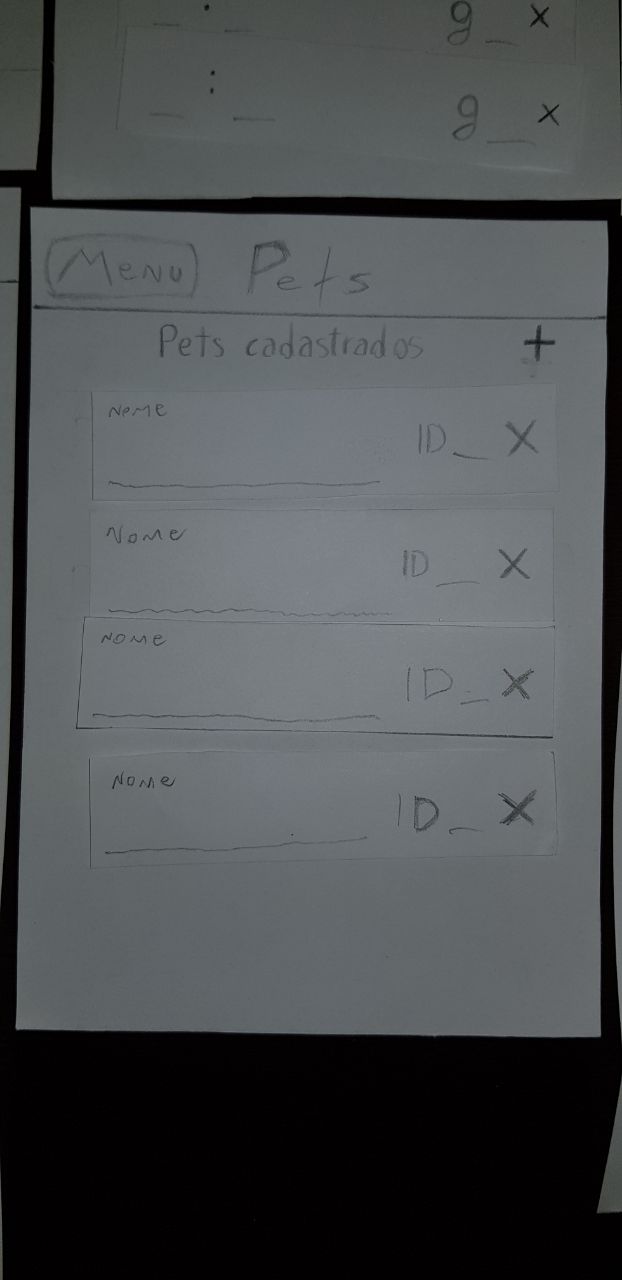 _ : _ g_ x
_ : _ g_ x
Menu Pets
Pets cadastrados +
Nome
ID_ X
Nome
ID_ X
Nome
ID_ X
Nome
ID_ X